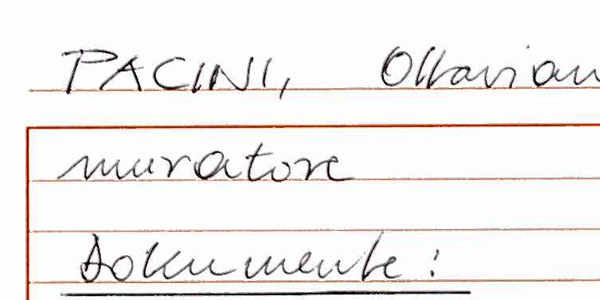 PACINI, Ottavian
muratore
Dokumente: